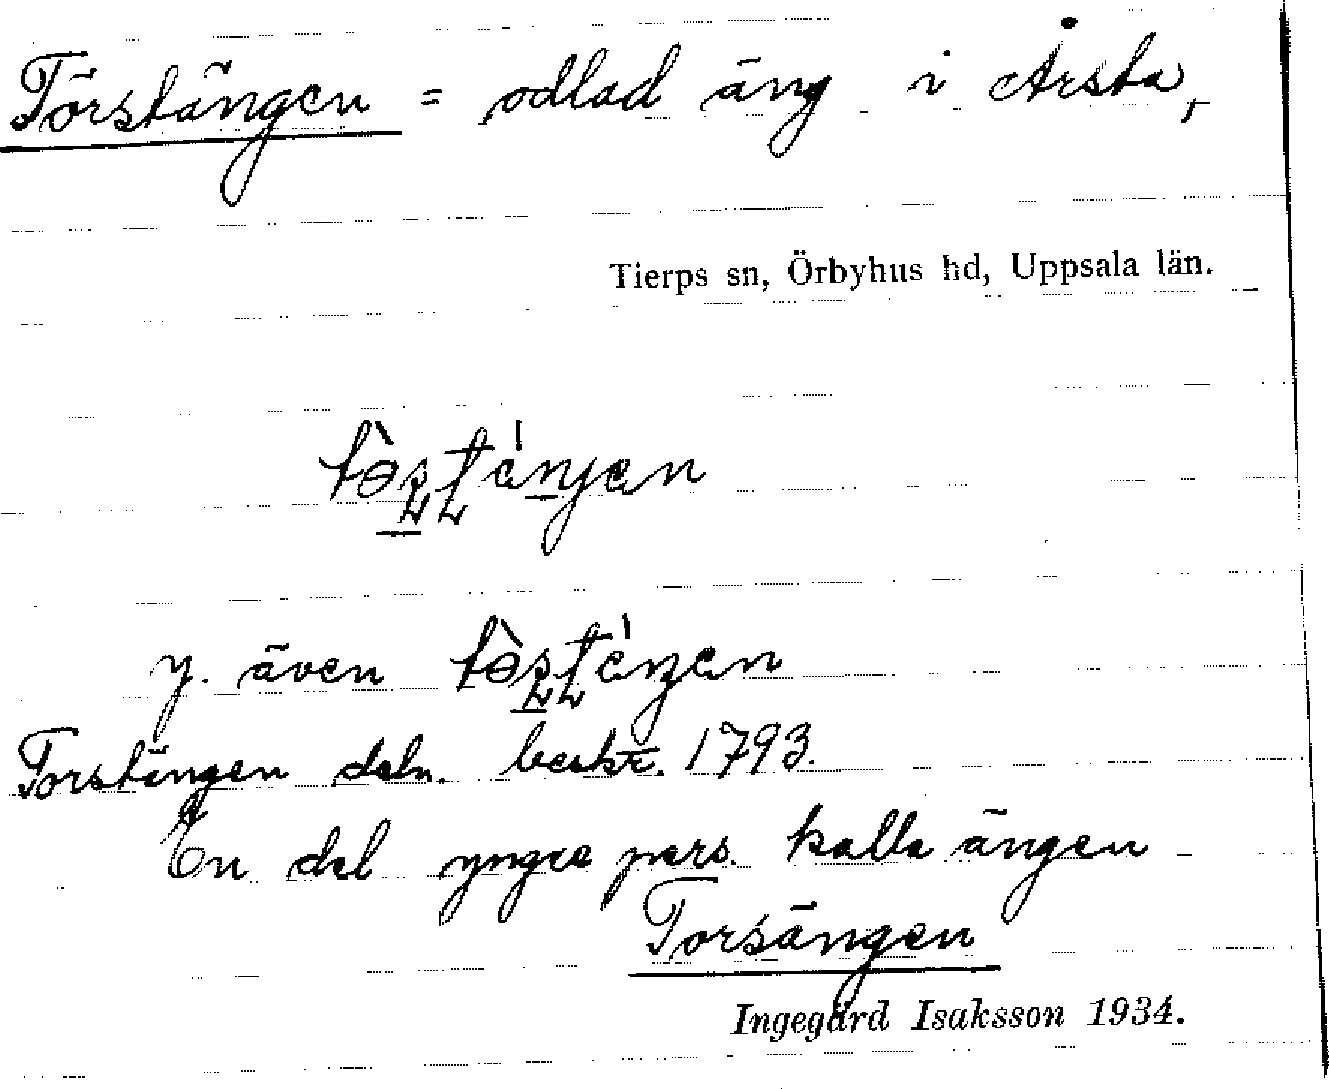 Törstängen = odlad äng i Årsta,
Tierps sn, Örbyhus hd, Uppsala län.
y. även
Torstängen deln. beskr. 1793.
En del yngre pers. kalla ängen
Torsängen
Ingegärd Isaksson 1934.